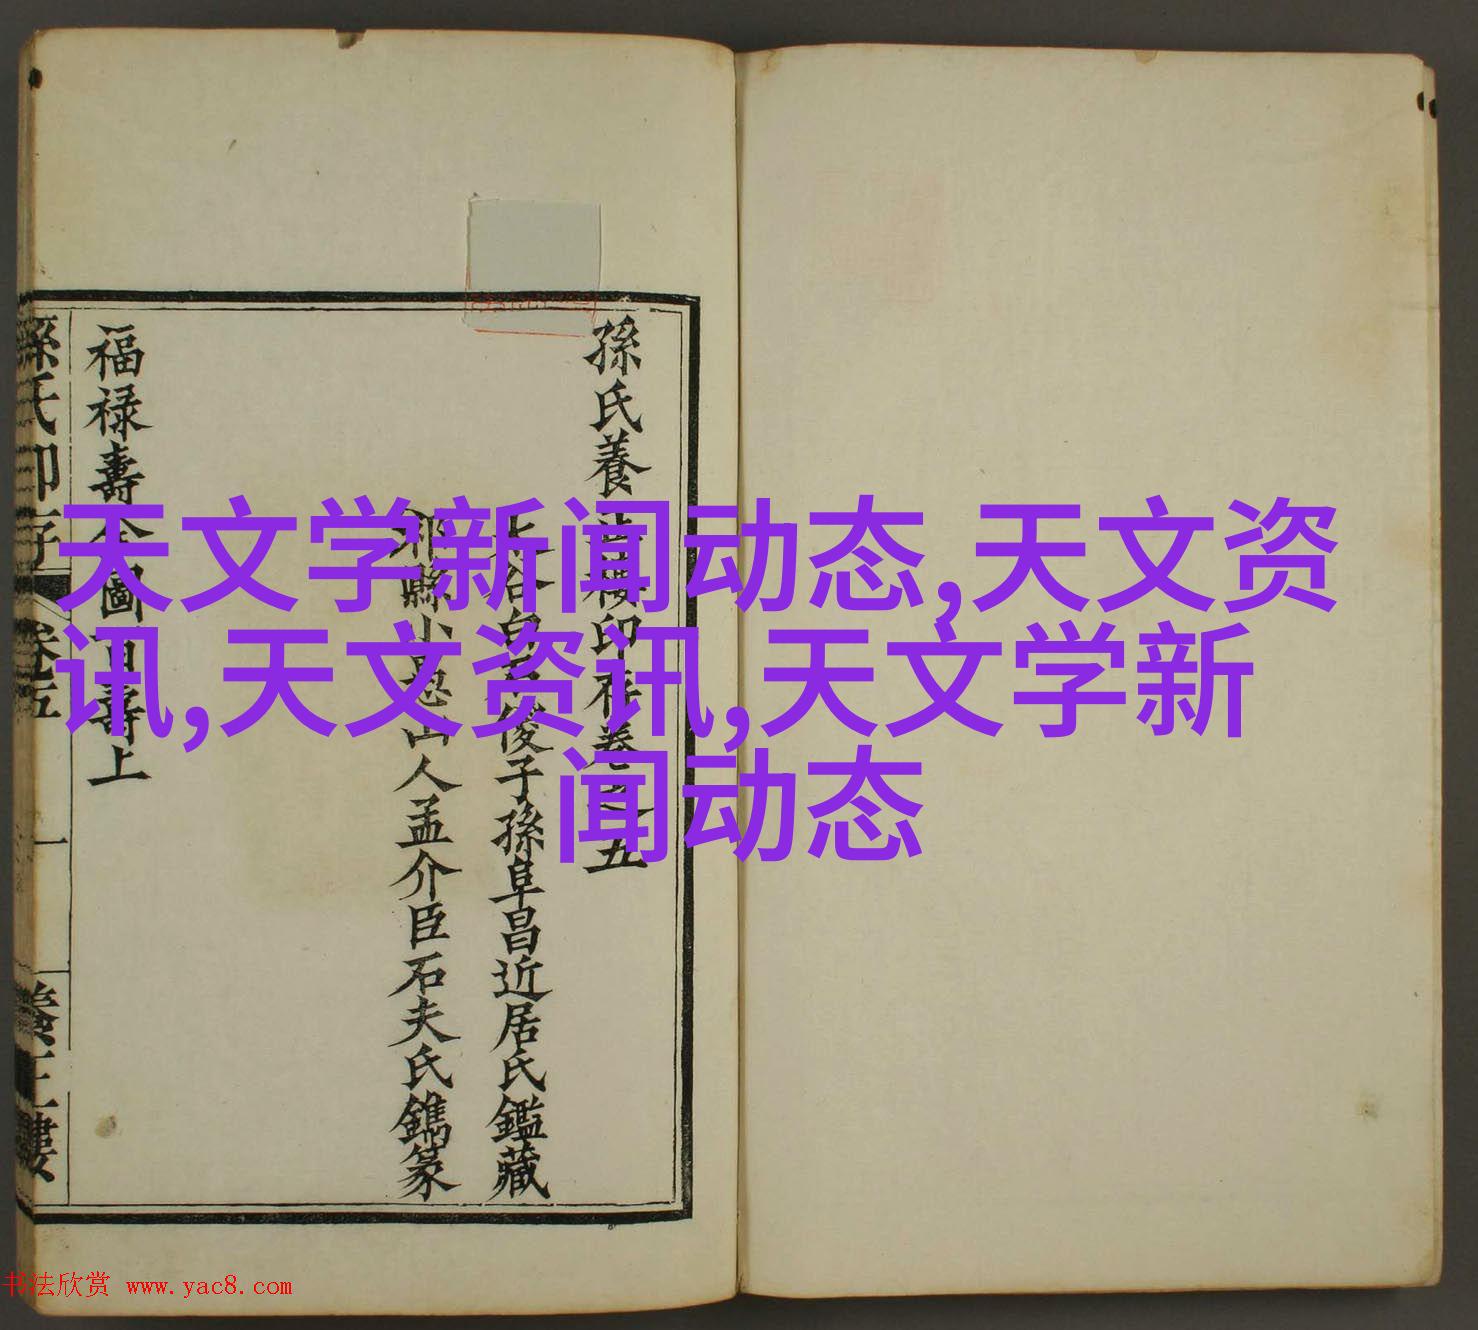 孫氏養
印存卷之五
俊子孫阜昌近居氏鑑藏
山人孟介臣石夫氏鐫篆
福祿壽
圖
壽上
卷五
一
天文学新闻动态,天文资
讯,天文资讯,天文学新
闻动态
书法欣赏 www.yac8.com